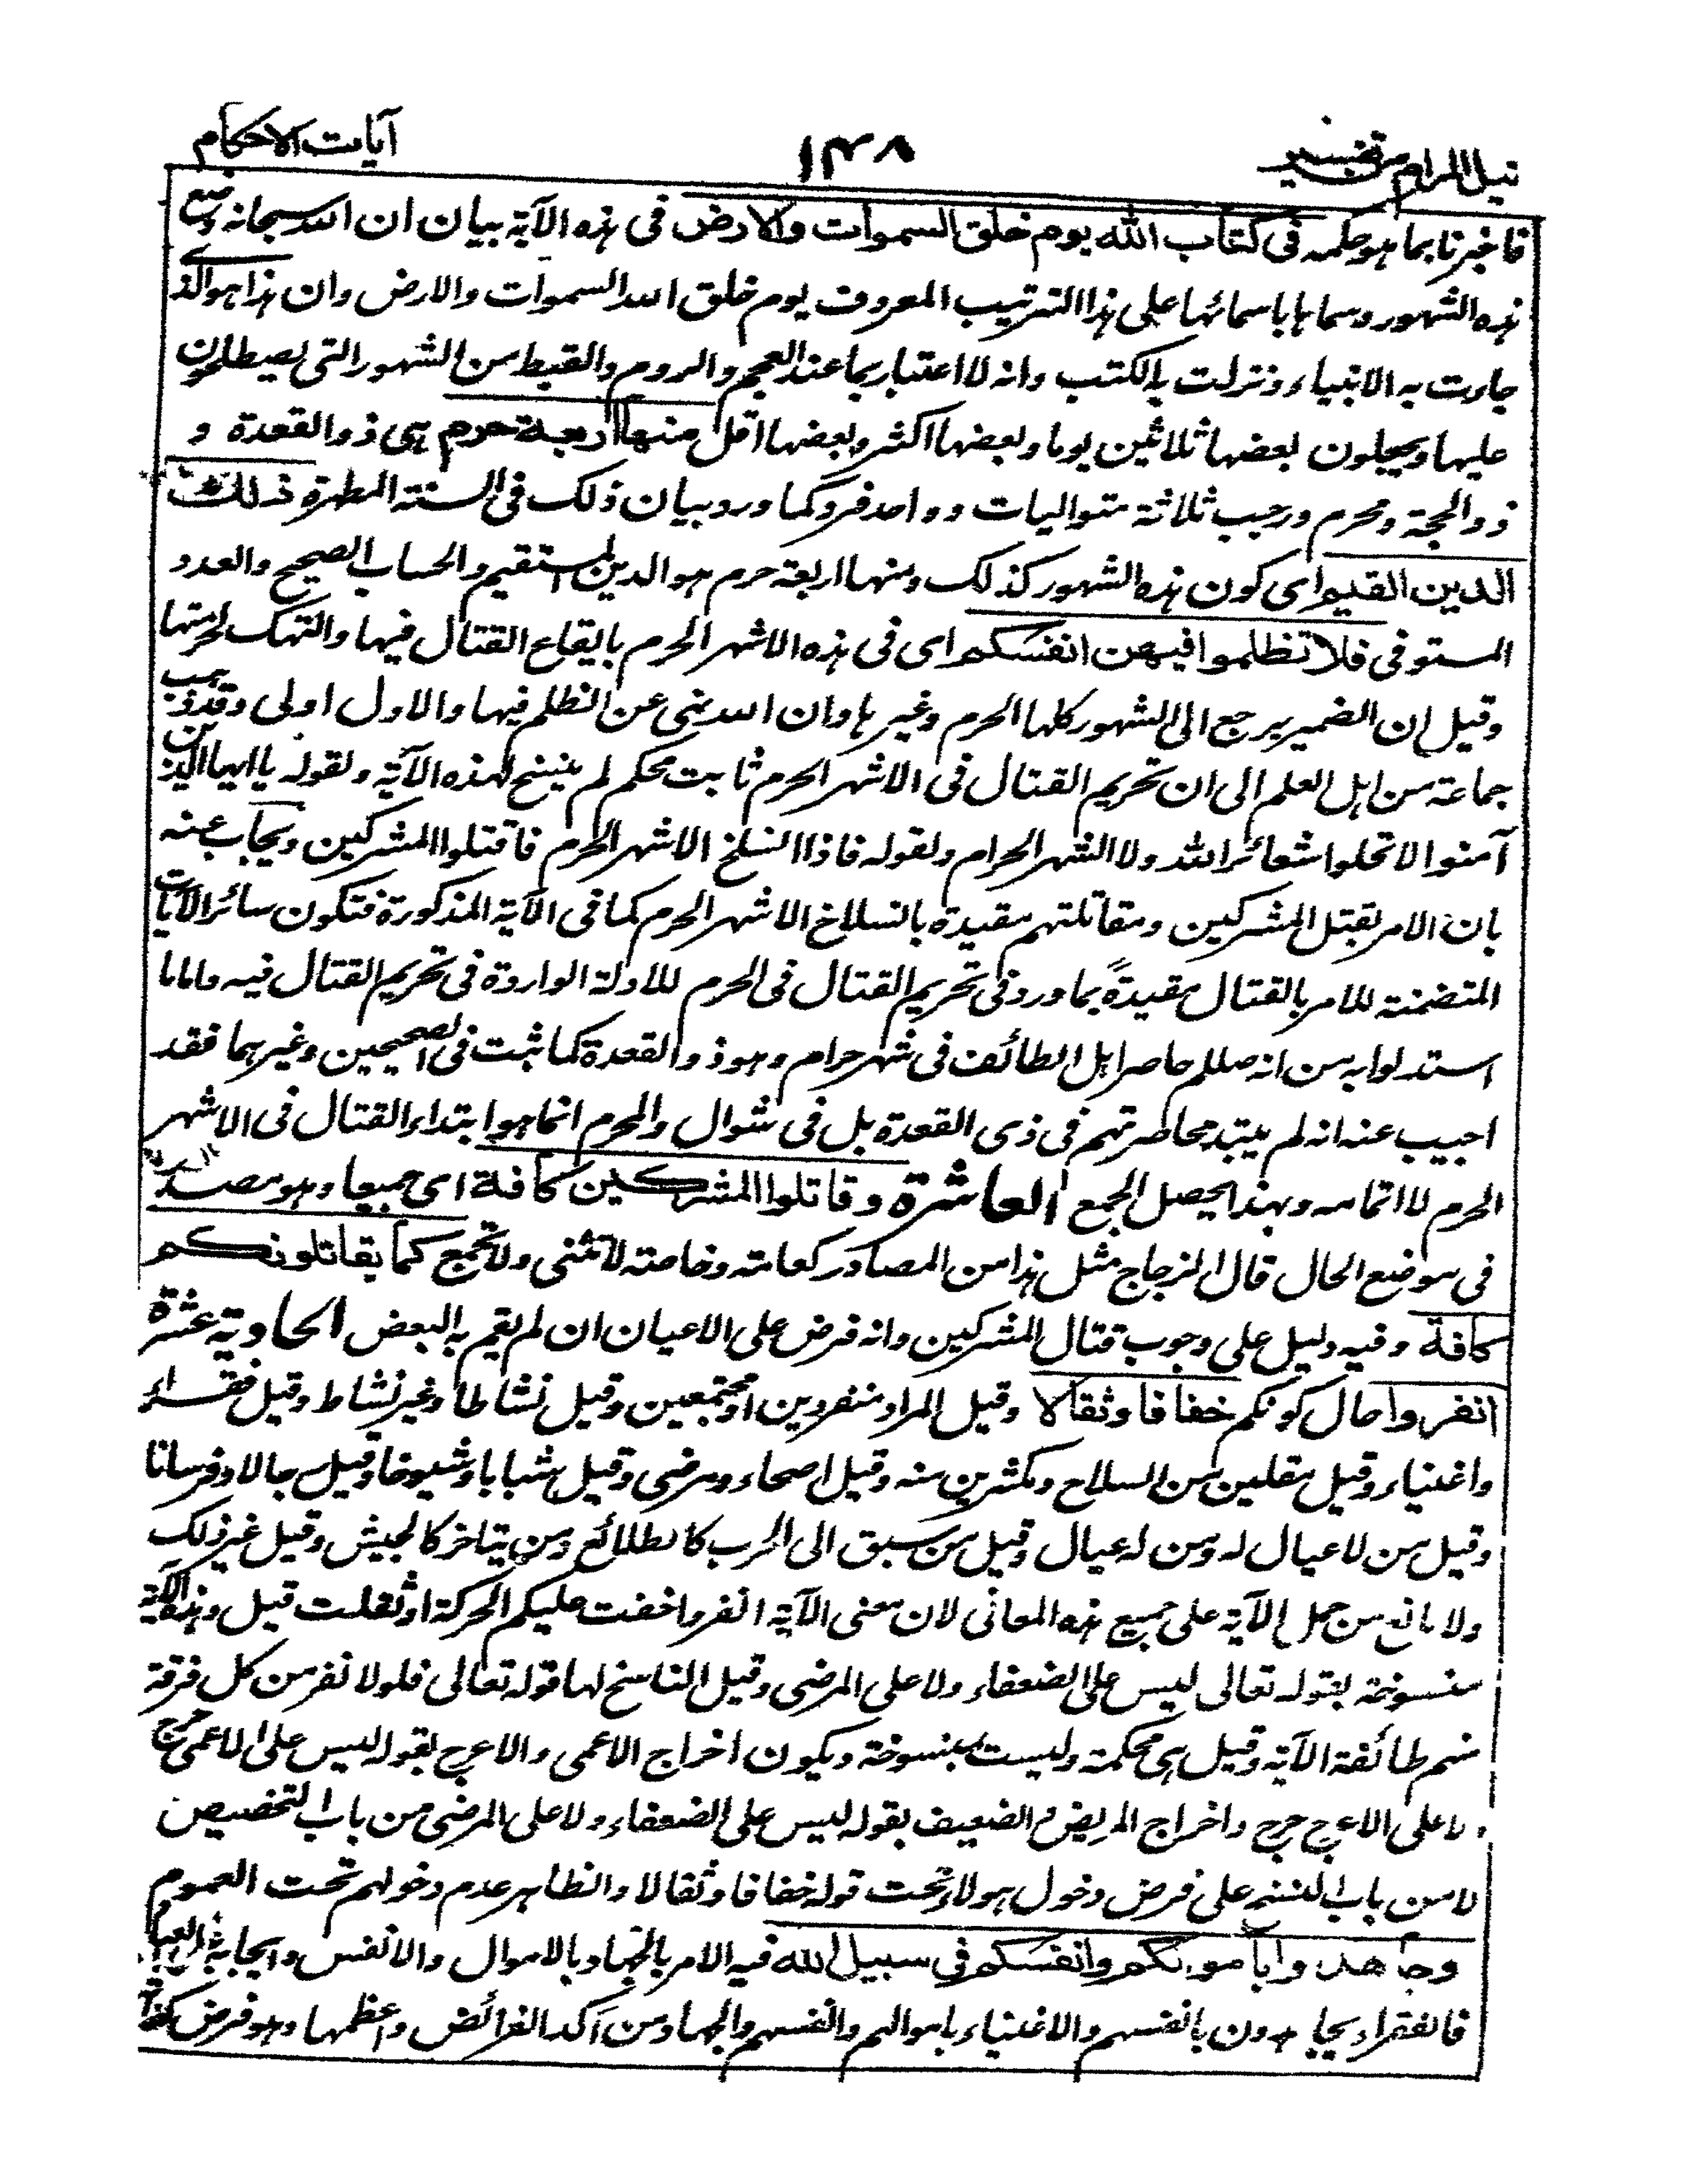 نيل المرام من تفسير
١٤٨
آيات الاحكام
فاخبرنا بما هو حكمه فى كتاب الله يوم خلق السموات والارض فى هذه الآية بيان ان الله سبحانه وضع
هذه الشهور وسماها باسمائها على هذا الترتيب المعروف يوم خلق الله السموات والارض وان هذا هو الذى
جاءت به الانبياء ونزلت به الكتب وانه لا اعتبار بما عند العجم والروم والقبط من الشهور التى يصطلحون
عليها ويجعلون بعضها ثلاثين يوما وبعضها اكثر وبعضها اقل منها اربعة حرم هى ذو القعدة و
ذو الحجة ومحرم ورجب ثلاثة متواليات وواحد فرد كما ورد بيان ذلك فى السنة المطهرة ذلك
الدين القيم اى كون هذه الشهور كذلك ومنها اربعة حرم هو الدين المستقيم والحساب الصحيح والعدد
المستوفى فلا تظلموا فيهن انفسكم اى فى هذه الاشهر الحرم بايقاع القتال فيها والتهتك لحرمتها
وقيل ان الضمير يرجع الى الشهور كلها الحرم وغيرها وان الله نهى عن الظلم فيها والاول اولى وقد ذهب
جماعة من اهل العلم الى ان تحريم القتال فى الاشهر الحرم ثابت محكم لم ينسخ لهذه الآية ولقوله يا ايها الذين
آمنوا لا تحلوا شعائر الله ولا الشهر الحرام ولقوله فاذا انسلخ الاشهر الحرم فاقتلوا المشركين ويجاب عنه
بان الامر بقتل المشركين ومقاتلتهم مقيدة بانسلاخ الاشهر الحرم كما فى الآية المذكورة فتكون سائر الآيات
المتضمنة للامر بالقتال مقيدة بما ورد فى تحريم القتال فى الحرم للادلة الواردة فى تحريم القتال فيه واما ما
استدلوا به من انه صللم حاصر اهل الطائف فى شهر حرام وهو ذو القعدة كما ثبت فى الصحيحين وغيرهما فقد
اجيب عنه انه لم يبتد محاصرتهم فى ذى القعدة بل فى شوال والمحرم انما هو ابتداء القتال فى الاشهر
الحرم لا اتمامه وبهذا يحصل الجمع العاشرة وقاتلوا المشركين كافة اى جميعا وهو مصدر
فى موضع الحال قال الزجاج مثل هذا من المصادر كعامة وخاصة لا تثنى ولا تجمع كما يقاتلونكم
كافة وفيه دليل على وجوب قتال المشركين وانه فرض على الاعيان ان لم يقم به البعض الحادية عشرة
انفروا حال كونكم خفافا وثقالا وقيل المراد منفردين او مجتمعين وقيل نشاطا وغير نشاط وقيل فقراء
واغنياء وقيل مقلين من السلاح ومكثرين منه وقيل اصحاء ومرضى وقيل شبابا وشيوخا وقيل رجالا وفرسانا
وقيل من لا عيال له ومن له عيال وقيل من سبق الى الحرب كالطلائع ومن يتاخر كالجيش وقيل غير ذلك
ولا مانع من حمل الآية على جميع هذه المعانى لان معنى الآية انفروا خفت عليكم الحركة او ثقلت قيل وهذه الآية
منسوخة بقوله تعالى ليس على الضعفاء ولا على المرضى وقيل الناسخ لها قوله تعالى فلولا نفر من كل فرقة
منهم طائفة الآية وقيل هى محكمة وليست بمنسوخة ويكون اخراج الاعمى والاعرج بقوله ليس على الاعمى حرج
ولا على الاعرج حرج واخراج المريض والضعيف بقوله ليس على الضعفاء ولا على المرضى من باب التخصيص
لا من باب النسخ على فرض دخول هولاء تحت قوله خفافا وثقالا والظاهر عدم دخولهم تحت العموم
وجاهدوا باموالكم وانفسكم فى سبيل الله فيه الامر بالجهاد بالاموال والانفس وايجابه على العباد
فالفقراء يجاهدون بانفسهم والاغنياء باموالهم وانفسهم والجهاد من آكد الفرائض واعظمها وهو فرض كفاية